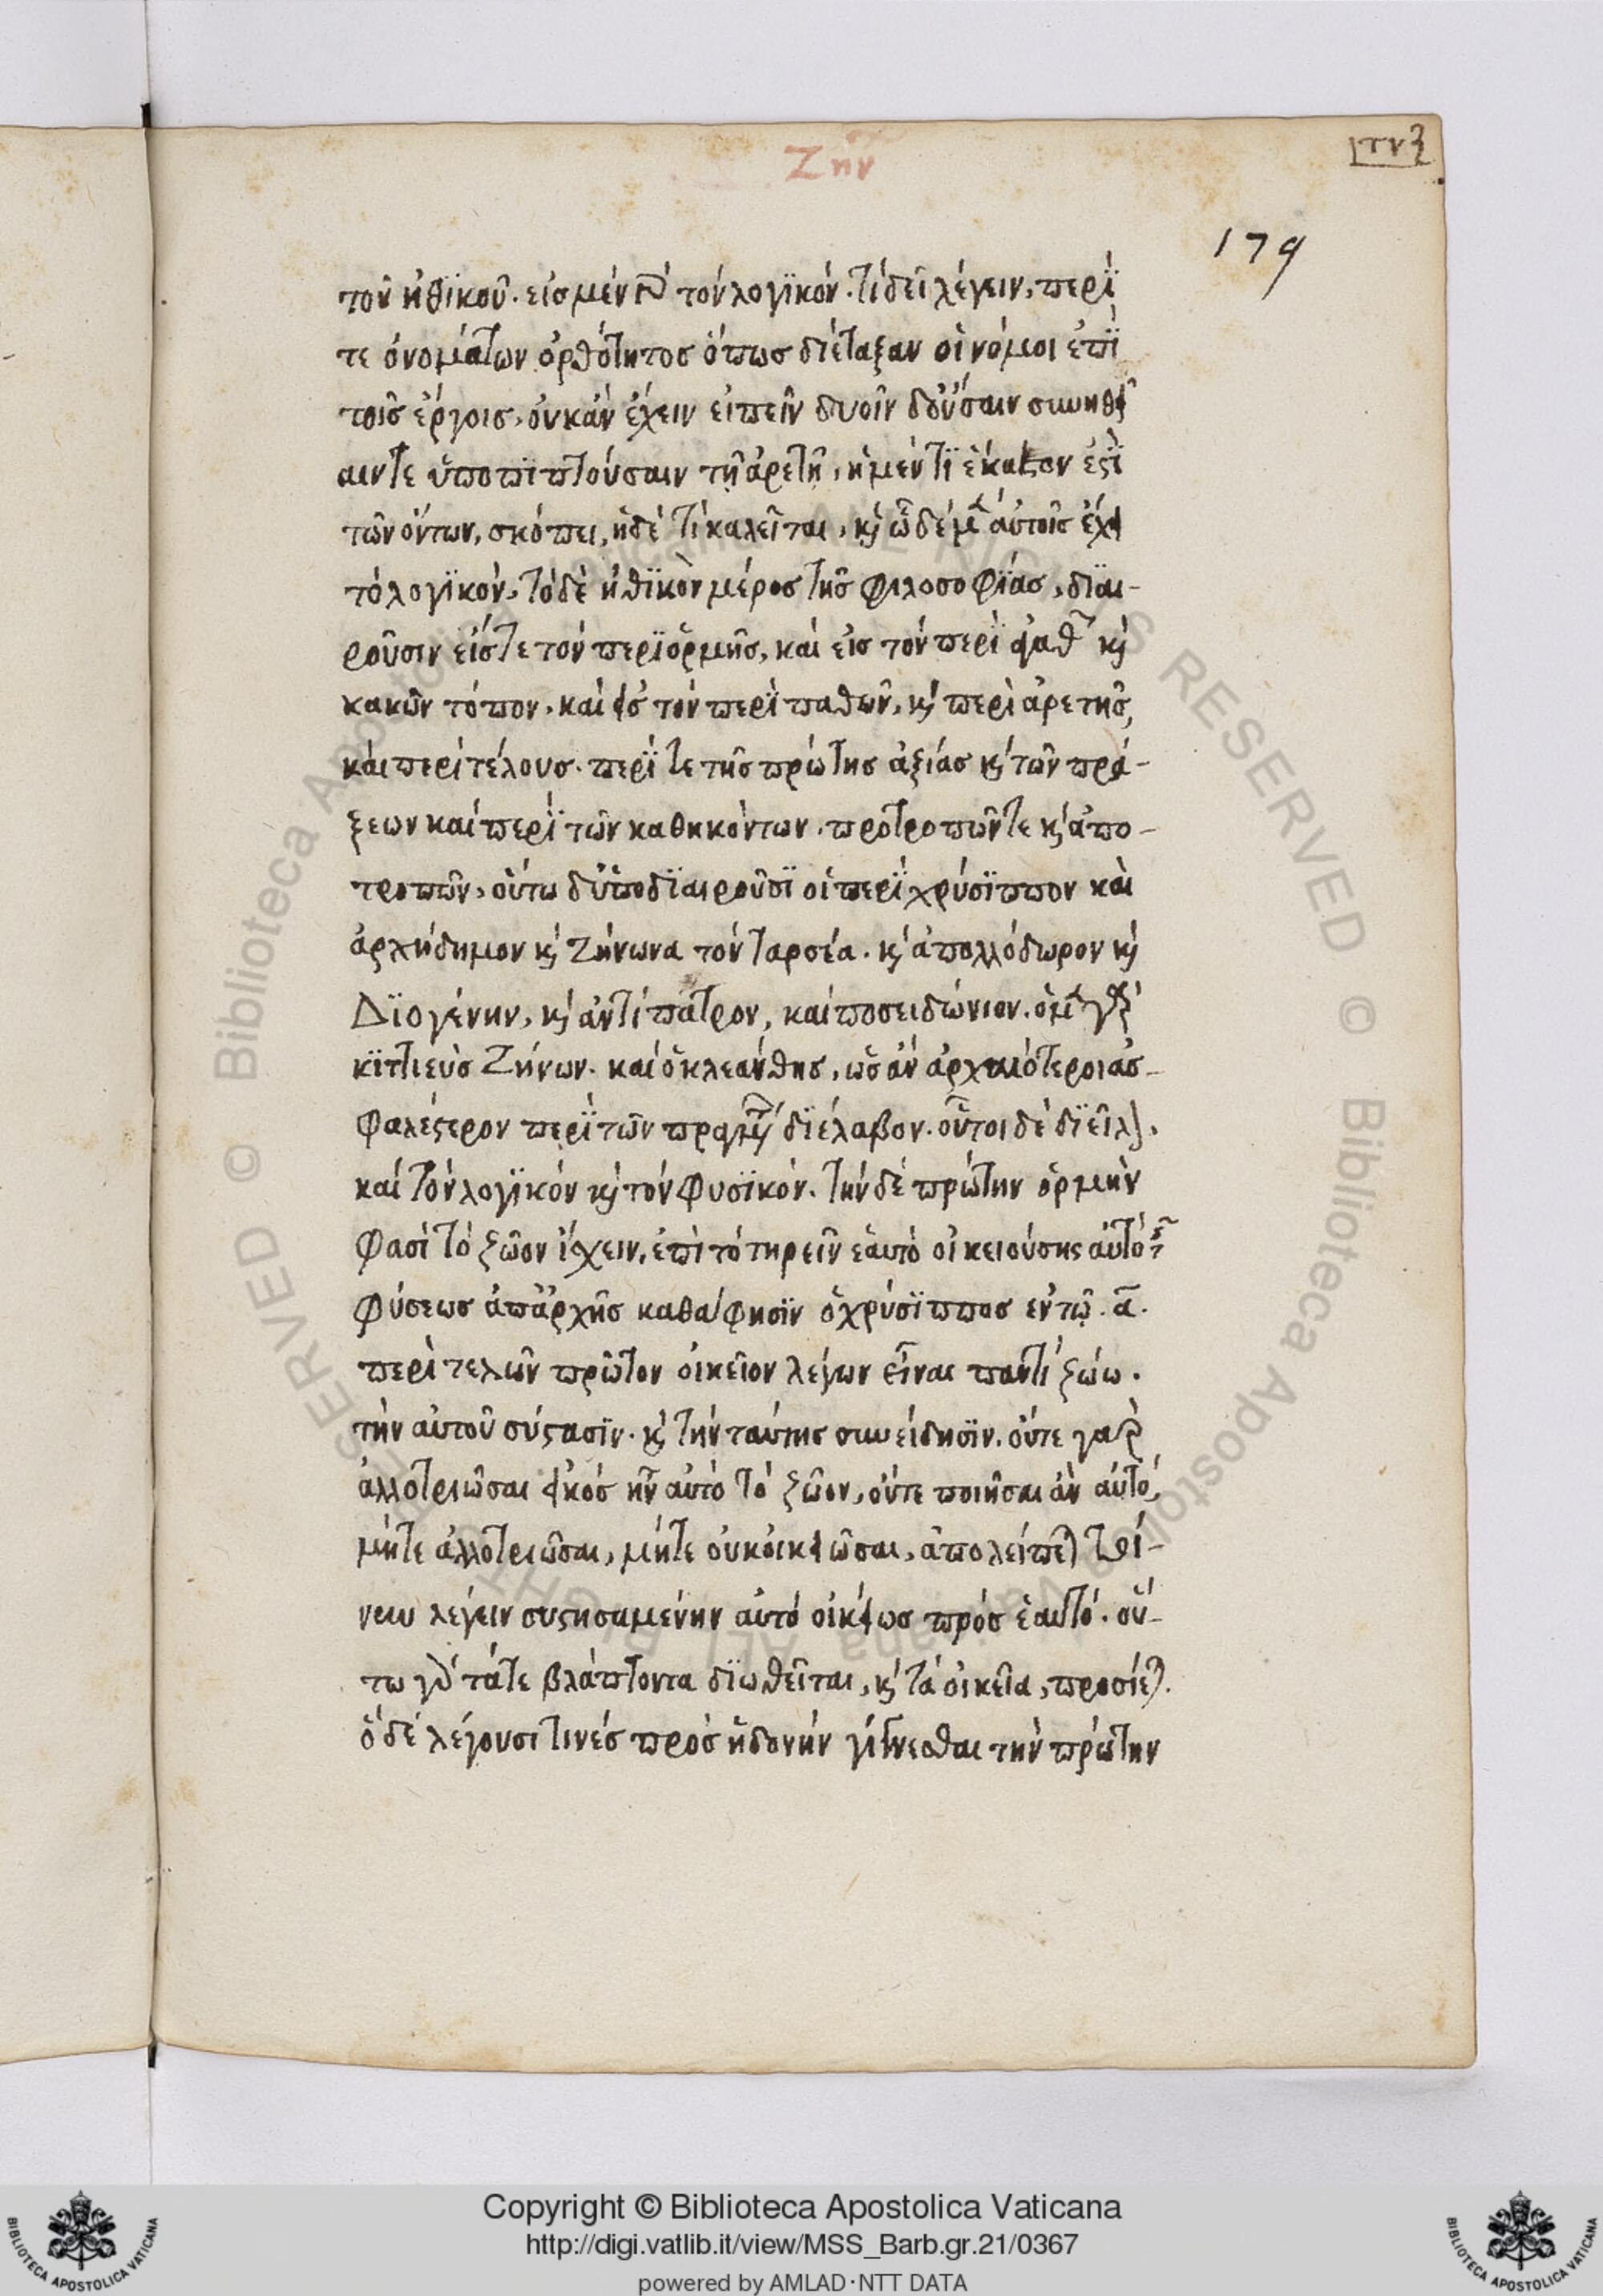 Ζην
179
τοῦ ἠθϊκοῦ. εἰσ μὲν οὖν τὸν λογϊκόν. τί δεῖ λέγειν, περῒ
τε ὀνομάτων ὀρθότητοσ ὅπωσ διέταξαν οἱ νόμοι ἐπῒ
τοῖσ ἔργοισ, οὐκ ἂν ἔχειν εἰπεῖν δυοῖν δ' οὔσαιν συνηθεί
αιν τε ὑποπϊπτούσαιν τῇ ἀρετῇ, ἡ μὲν τῒ ἕκαστον ἐστῒ
τῶν ὄντων, σκόπει, ἡ δὲ τί καλεῖται, κὶ ὧδε μὲν αὐτοῖσ ἔχει
τὸ λογϊκόν, τὸ δὲ ἠθϊκὸν μέροσ τῆσ φιλοσοφΐασ, δϊαι-
ροῦσιν εἴσ τε τὸν περῒ ὁρμῆσ, καὶ εἰσ τὸν περῒ ἀγαθῶν κὶ
κακῶν τόπον, καὶ εἰσ τὸν περῒ παθῶν, κὶ περὶ ἀρετῆσ,
καὶ περὶ τέλουσ. περῒ τε τῆσ πρώτησ ἀξίασ κὶ τῶν πρά-
ξεων καὶ περῒ τῶν καθηκόντων. προτροπῶν τε κὶ ἀπο-
τροπῶν, οὕτω δ' ὑποδϊαιροῦσϊ οἱ περῒ χρύσϊππον καὶ
ἀρχήδημον κὶ Ζήνωνα τὸν ταρσέα. κὶ ἀπολλόδωρον κὶ
Δϊογένην, κὶ ἀντίπατρον, καὶ ποσειδώνιον. ὁ μὲν γὰρ
κϊττιεὺσ Ζήνων. καὶ ὁ κλεάνθησ, ὡσ ἂν ἀρχαιότεροι ἀσ-
φαλέστερον περῒ τῶν πραγμάτων δϊέλαβον. οὗτοι δὲ δϊεῖλον.
καὶ τὸν λογϊκόν κὶ τὸν φυσϊκόν. τὴν δὲ πρώτην ὁρμὴν
φασὶ τὸ ζῶον ἴσχειν, ἐπὶ τὸ τηρεῖν ἑαυτὸ οἰκειούσης αὐτὸ τῆσ
φύσεωσ ἀπ' ἀρχῆσ καθά φησϊν ὁ χρύσϊπποσ ἐν τῷ. α.
περὶ τελῶν πρῶτον οἰκεῖον λέγων εἶναι παντὶ ζώω.
τὴν αὐτοῦ σύστασϊν. κὶ τὴν ταύτησ συνείδησϊν. οὔτε γὰρ
ἀλλοτριῶσαι εἰκόσ ἦν αὐτὸ τὸ ζῶον, οὔτε ποιῆσαι ἂν αὐτό,
μήτε ἀλλοτριῶσαι, μήτε οὐκ οἰκειῶσαι, ἀπολείπεται τοί-
νυν λέγειν συστησαμένην αὐτὸ οἰκείωσ πρὸσ ἑαυτό. οὕ-
τω γὰρ τά τε βλάπτοντα δϊωθεῖται, κὶ τὰ οἰκεῖα, προσίεται.
ὃ δὲ λέγουσι τινὲσ πρὸσ ἡδονὴν γίγνεσθαι τὴν πρώτην
Copyright © Biblioteca Apostolica Vaticana
http://digi.vatlib.it/view/MSS_Barb.gr.21/0367
powered by AMLAD·NTT DATA